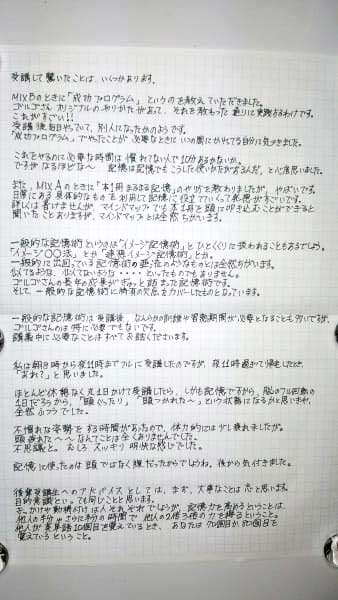 受講して驚いたことは、いくつかあります。
MIXBのときに「成功プログラム」というのを教えていただきました。
ゴルゴさんオリジナルのやりかたがあって、それを教わった通りに実践するわけです。
これがすごい!!
受講後毎日やっていて、別人になったかのようです。
「成功プログラム」でやったことが必要なときにいつの間にかやってる自分に気づきました。
これをやるのに必要な時間は慣れてない人で10分あるかないか。
でもなるほどな〜 記憶は記憶でもこうした使いかたがあるんだ、と心底思いました。
また、MIXAのときに「本1冊まるまる記憶」のやり方を教わりましたが、やばいです。
日常にある具体的なものを利用して記憶に役立てていくって発想がすごいです。
詳しくは書けませんが、マインドマップでも本1冊を頭に叩き込むことができると
聞いたことありますが、マインドマップとは全然ちがいます。
一般的な記憶術というのは「イメージ記憶術」とひとくくりに扱われることもあるでしょう。
「イメージ〇〇法」とか「連想イメージ記憶術」とか。
一般的に出回っている記憶術の亜流のようなものとは全然ちがいます。
似てるような、似てないような・・・・といったものでもありません。
ゴルゴさんの長年の成果がぎゅっと詰まった記憶術です。
そして、一般的な記憶術に特有の欠点をカバーしたものとなっています。
一般的な記憶術は受講後、なんらかの訓練や習熟期間が必要となることも多いですが、
ゴルゴさんのは特に必要でもないです。
講義中に必要なことはすべてお話くださいます。
私は朝9時から夜11時までフルに受講したのですが、夜11時過ぎて帰宅したとき、
「あれ?」と思いました。
ほとんど休憩なく丸1日かけて受講したら、しかも記憶ですから、脳のフル回転の
1日だろうから、「頭ぐったり」「頭つかれた〜」という状態になるかと思いきや、
全然ふつうでした。
不慣れな姿勢をする時間があったので、体力的には少し疲れましたが、
頭疲れた〜〜なんてことは全くありませんでした。
不思議と。むしろスッキリ明快な感じでした。
記憶に使ったのは頭ではなく腹だったからでしょうね。後から気付きました。
後輩受講生へのアドバイスとしては、まず、大事なことは志と思います。
目的意識といっても同じことと思います。
きっかけや動機付けは人それぞれでしょうが、記憶力を高めるということは
他人が英単語10個目を覚えているとき、あなたは70個目か80個目を
覚えているということ。